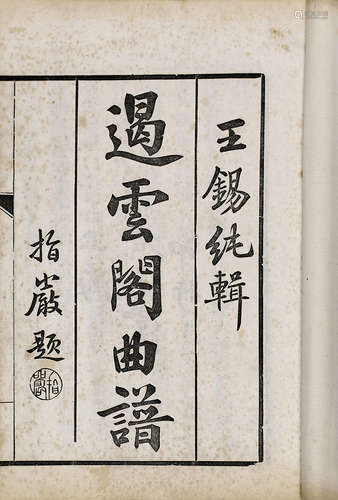 王錫純輯
遏雲閣曲譜
指嚴題